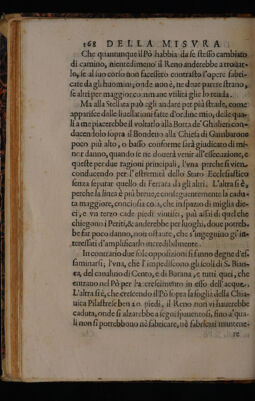 168 DELLA MISVRA
Che quantunque il Pò habbia da se stesso cambiato
di camino, nientedimeno il Reno anderebbe a trouar-
lo, se al suo corso non facessero contrasto l'opere fabri-
cate da gli huomini, onde non è, ne deue parere strano,
se altri per maggior commune vtilità glie lo renda.
Ma alla Stellata può egli andare per più strade, come
apparisce dalle liuellationi fatte d'ordine mio, delle qua-
li a me piacerebbe il voltarlo alla Botta de' Ghislieri con-
ducendolo sopra il Bondeno alla Chiesa di Gambarone
poco più alto, o basso conforme sarà giudicato di mi-
nor danno, quando se ne douerà venir all'essecutione, e
queste per due ragioni principali, l'vna perche si vien
conducendo per l'estremità dello Stato Ecclesiastico
senza separar quello di Ferrara da gli altri. L'altra si è,
perche la linea è più breue, e conseguentemente la cadu-
ta maggiore, conciosia cosa, che in spazio di miglia die-
ci, e vn terzo cade piedi vintisei, più assai di quel che
chiegono i Periti, & anderebbe per luoghi, doue potreb-
be far poco danno, non ostante, che s'ingegnino gl' in-
teressati d'amplificarlo incredibilmente.
In contrario due sole oppositioni si fanno degne d'es-
saminarsi; l'vna, che l'impediscono gli scoli di S. Bian-
ca, del canalino di Cento, e di Burana, e tutti quei, che
entrano nel Pò per l'accrescimento in esso dell'acque.
L'altra si è, che crescendo il Pò sopra la soglia della Chia-
uica Pilastrese ben 20. piedi, il Reno non vi hauerebbe
caduta, onde si alzarebbe a segni spauentosi, sino a' qua-
li non si potrebbono nè fabricare, nè fabricati mantene-